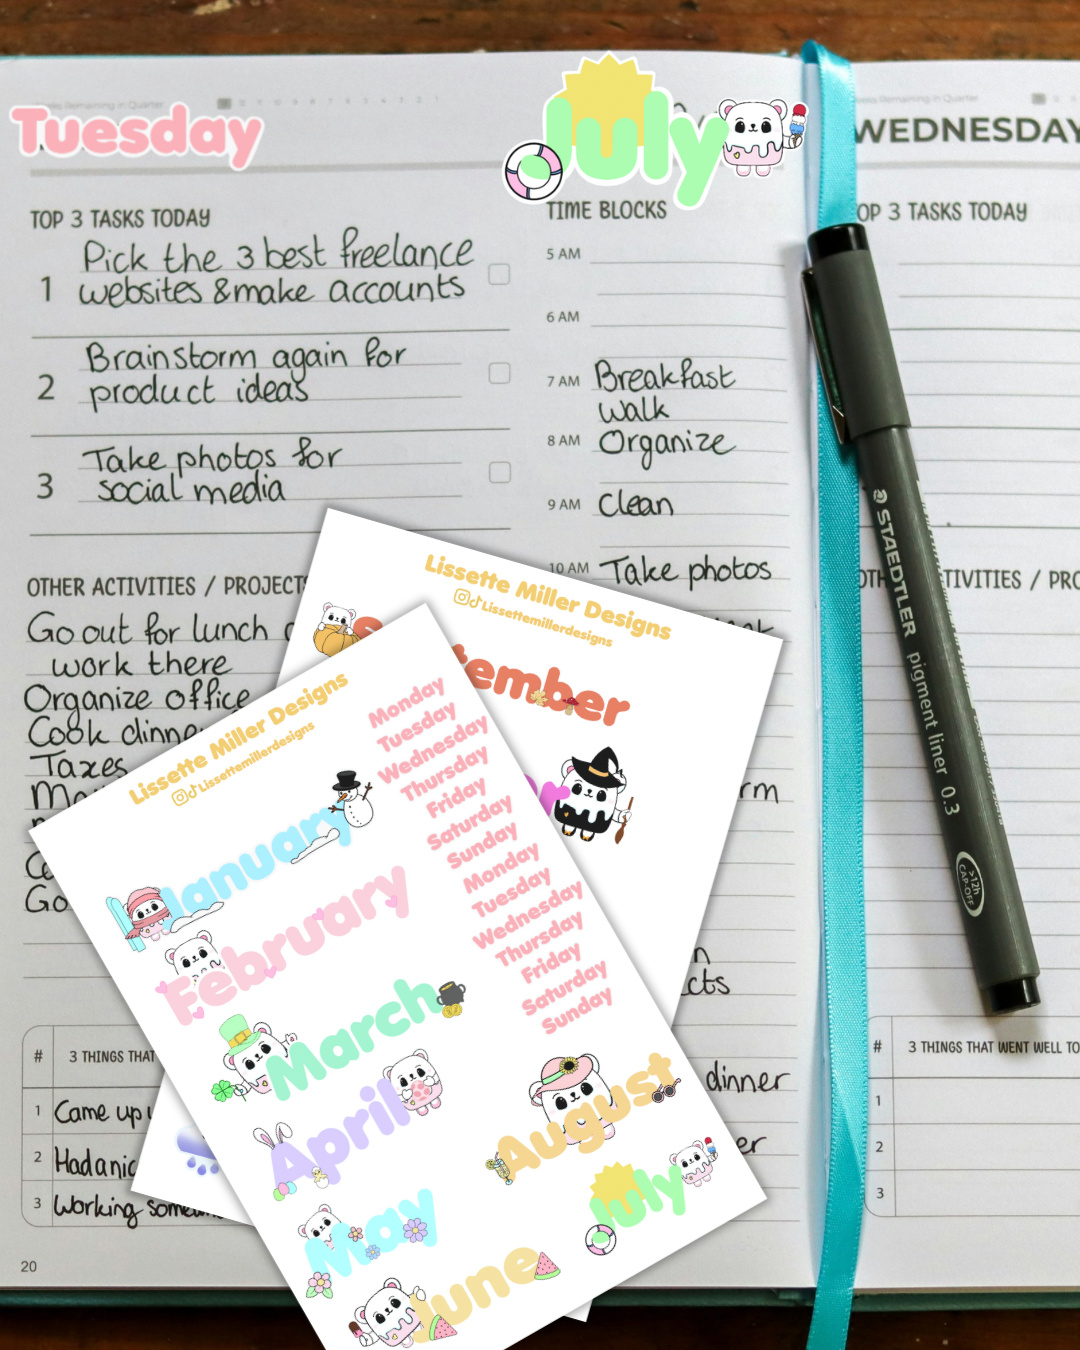 Tuesday
July
WEDNESDAY
TOP 3 TASKS TODAY
1 Pick the 3 best freelance
websites & make accounts
2 Brainstorm again for
product ideas
3 Take photos for
social media
OTHER ACTIVITIES / PROJECTS
Go out for lunch
work there
Organize office
Cook dinner
Taxes
Go
# 3 THINGS THAT
1 Came up
2 Had a nic
3 Working
20
TIME BLOCKS
5 AM
6 AM
7 AM Breakfast
walk
8 AM Organize
9 AM Clean
10 AM Take photos
dinner
TOP 3 TASKS TODAY
# 3 THINGS THAT WENT WELL TO
1
2
3
STAEDTLER pigment liner 0.3
>12h
CAP-OFF
Lissette Miller Designs
Lissettemillerdesigns
tember
Lissette Miller Designs
Lissettemillerdesigns
January
February
March
April
May
June
Monday
Tuesday
Wednesday
Thursday
Friday
Saturday
Sunday
Monday
Tuesday
Wednesday
Thursday
Friday
Saturday
Sunday
August
July